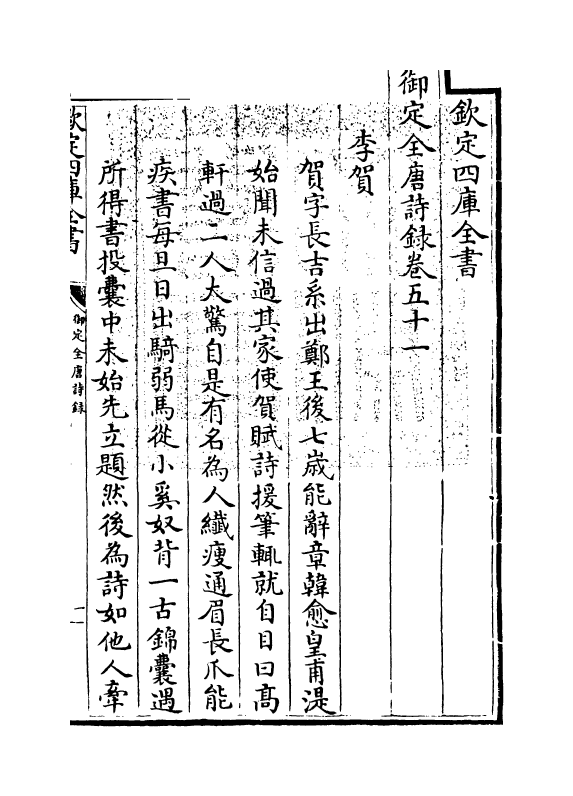 欽定四庫全書
御定全唐詩録卷五十一
李賀
賀字長吉系出鄭王後七歲能辭章韓愈皇甫湜
始聞未信過其家使賀賦詩援筆輒就自目曰高
軒過二人大驚自是有名為人纖瘦通眉長爪能
疾書每旦日出騎弱馬從小奚奴背一古錦囊遇
所得書投囊中未始先立題然後為詩如他人牽
欽定四庫全書
御定全唐詩録
一